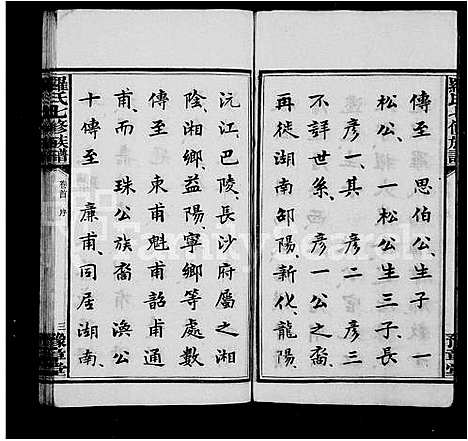 羅氏七修族譜
傳至 思伯公生子一
松公 一松公生三子長
彥一其 彥二 彥三
不詳世系 彥一公之裔
再徙湖南邵陽新化龍陽
沅江巴陵長沙府屬之湘
陰湘鄉益陽寧鄉等處數
傳至 東甫魁甫韶甫通
甫而 珠公族裔渙公
十傳至 廉甫同居湖南
羅氏七修族譜
卷首 序
三
豫章堂
FamilySearch